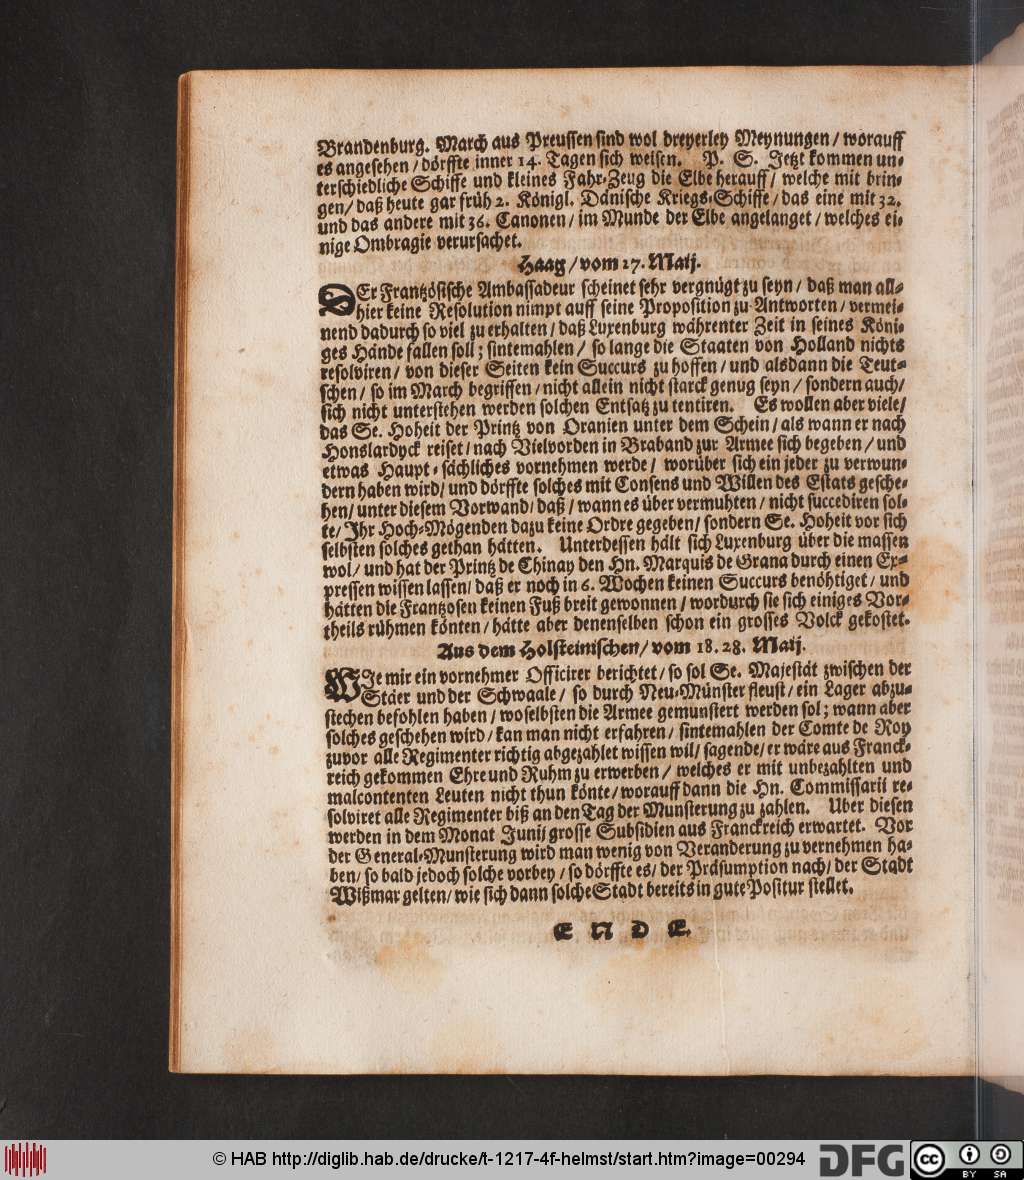 Brandenburg. March aus Preussen sind wol dreyerley Meynungen / worauff
es angesehen / dörffte inner 14. Tagen sich weisen. P. S. Jetzt kommen un-
terschiedliche Schiffe und kleines Fahr-Zeug die Elbe herauff / welche mit brin-
gen / daß heute gar früh 2. Königl. Dänische Kriegs-Schiffe / das eine mit 32.
und das andere mit 36. Canonen / im Munde der Elbe angelanget / welches ei-
nige Ombragie verursachet.
Haag / vom 27. Maij.
DEr Frantzösische Ambassadeur scheinet sehr vergnügt zu seyn / daß man all-
hier keine Resolution nimpt auff seine Proposition zu Antworten / vermei-
nend dadurch so viel zu erhalten / daß Luxenburg währenter Zeit in seines Köni-
ges Hände fallen soll ; sintemahlen / so lange die Staaten von Holland nichts
resolviren / von dieser Seiten kein Succurs zu hoffen / und alsdann die Teut-
schen / so im March begriffen / nicht allein nicht starck genug seyn / sondern auch /
sich nicht unterstehen werden solchen Entsatz zu tentiren. Es wollen aber viele /
das Se. Hoheit der Printz von Oranien unter dem Schein / als wann er nach
Honslardyck reiset / nach Vielvorden in Braband zur Armee sich begeben / und
etwas Haupt-sächliches vornehmen werde / worüber sich ein jeder zu verwun-
dern haben wird / und dörffte solches mit Consens und Willen des Estats gesche-
hen / unter diesem Vorwand / daß / wann es über vermuhten / nicht succediren sol-
te / Ihr Hoch-Mögenden dazu keine Ordre gegeben / sondern Se. Hoheit vor sich
selbsten solches gethan hätten. Unterdessen hält sich Luxenburg über die massen
wol / und hat der Printz de Chinay den Hn. Marquis de Grana durch einen Ex-
pressen wissen lassen / daß er noch in 6. Wochen keinen Succurs benöhtiget / und
hätten die Frantzosen keinen Fuß breit gewonnen / wordurch sie sich einiges Vor-
theils rühmen könten / hätte aber denenselben schon ein grosses Volck gekostet.
Aus dem Holsteinischen / vom 18. 28. Maij.
WIe mir ein vornehmer Officirer berichtet / so sol Se. Majestät zwischen der
Stäer und der Schwaale / so durch Neu-Münster fleust / ein Lager abzu-
stechen befohlen haben / woselbsten die Armee gemunstert werden sol ; wann aber
solches geschehen wird / kan man nicht erfahren / sintemahlen der Comte de Roy
zuvor alle Regimenter richtig abgezahlet wissen wil / sagende / er wäre aus Franck-
reich gekommen Ehre und Ruhm zu erwerben / welches er mit unbezahlten und
malcontenten Leuten nicht thun könte / worauff dann die Hn. Commissarii re-
solviret alle Regimenter biß an den Tag der Munsterung zu zahlen. Uber diesen
werden in dem Monat Junii grosse Subsidien aus Franckreich erwartet. Vor
der General-Munsterung wird man wenig von Veranderung zu vernehmen ha-
ben / so bald jedoch solche vorbey / so dörffte es / der Präsumption nach / der Stadt
Wißmar gelten / wie sich dann solche Stadt bereits in gute Positur stellet.
E N D E.
© HAB http://diglib.hab.de/drucke/t-1217-4f-helmst/start.htm?image=00294
DFG
cc BY SA